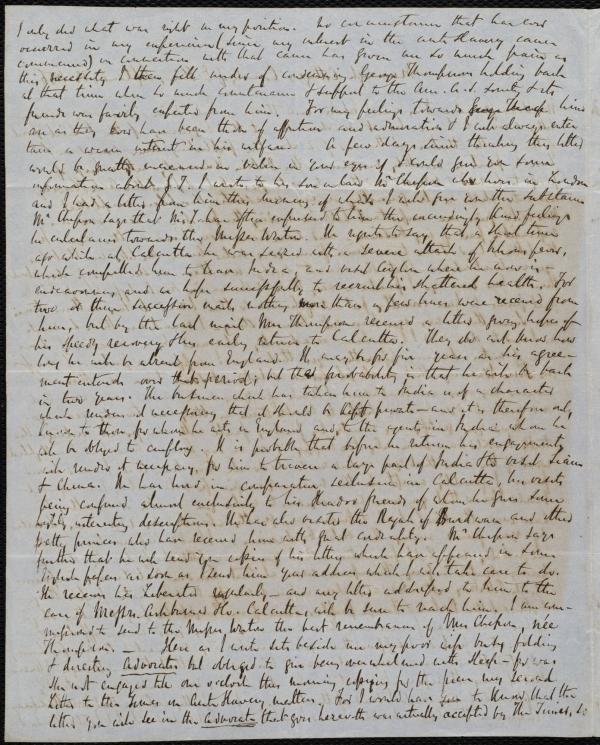 I only did what was right in my position. No circumstance that has ever
occurred in my experience (since my interest in the anti-slavery cause
commenced) in connection with that cause has given me so much pain as
this necessity I then felt under of considering George Thompson holding back
at that time when so much countenance & support to the Am. A.S. Society & its
friends was fairly expected from him. For my feelings towards him
are as they ever have been those of affection and admiration & I will always enter
tain a warm interest in his welfare. A few days since thinking this letter
would be greatly increased in value in your eyes if I could give you some
information about G.T. I wrote to his son in law Mr Chesson who lives in London
and I had a letter from him this morning of which I will give you the substance
Mr Chesson says that Mr T. has often expressed to him the exceedingly kind feelings
he entertains towards the Misses Weston. He regrets to say that a short time
ago while at Calcutta he was seized with a severe attack of fever,
which compelled him to leave India, and visit Ceylon where he now is
endeavouring and we hope successfully to recruit his shattered health. For
two or three successive mails nothing more than a few lines were received from
him, but by the last mail Mrs Thompson received a letter giving hopes of
his speedy recovery & his early return to Calcutta. They do not know how
long he will be absent from England. It may be for five years as his agree-
ment extends over that period; but the probability is that he will be back
in two years. The business which has taken him to India is of a character
which renders it necessary that it should be kept private — and it is therefore only
known to those for whom he acts in England and to the agents in India whom he
will be obliged to employ. It is probable that before he returns his engagements
will render it necessary for him to traverse a large part of India & to visit Siam
& China. He has lived in comparative seclusion in Calcutta, his visits
being confined almost exclusively to his Hindoo friends of whom he gives some
interesting descriptions. He has also visited the Rajah of Burdwan and other
native princes who have received him with great cordiality. Mr Chesson says
further that he will send you copies of his letters which have appeared in some
English papers as soon as I send him your address which I will take care to do.
He receives his Liberator regularly — and any letters addressed to him to the
care of Messrs. Ashburner & Co. Calcutta, will be sure to reach him. I am com-
missioned to send to the Misses Weston the best remembrances of Mrs Chesson, née
Thompson. — Here as I write sits beside me my poor wife busy folding
& directing Advocates but obliged to give being overwhelmed with sleep — for was
she not engaged till one o'clock this morning copying for the press my second
letter to the Times on Anti-Slavery matters. For I would have you to know that the
letter you will see in the Advocate that goes herewith was actually accepted by The Times, &